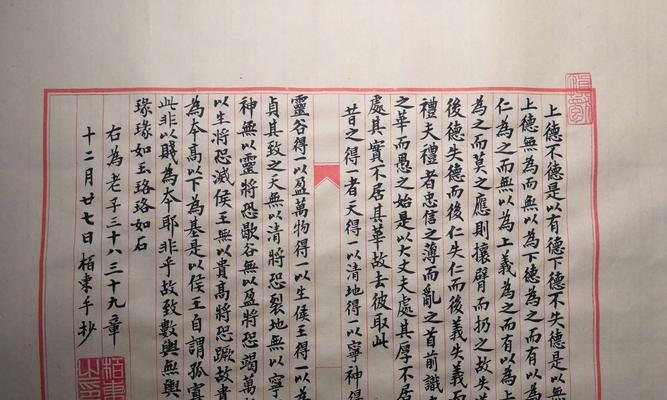 上德不德是以有德下德不失德是以無
上德無為而無以為下德為之而有以為
仁為之而無以為上義為之而有以為
為之而莫之應則攘臂而扔之故失道
後德失德而後仁失仁而後義失義而
禮夫禮者忠信之薄而亂之首前識
之華而愚之始是以大丈夫處其厚不居
處其實不居其華故去彼取此
昔之得一者天得一以清地得一以寧神得
靈谷得一以盈萬物得一以生侯王得一以為
貞其致之天無以清將恐裂地無以寧
神無以靈將恐歇谷無以盈將恐竭萬
以生將恐滅侯王無以貴高將恐蹶故貴
為本高以下為基是以侯王自謂孤寡
此非以賤為本耶非乎故致數輿無輿
琭琭如玉珞珞如石
右為老子三十八三十九章
十二月廿七日栢東手抄